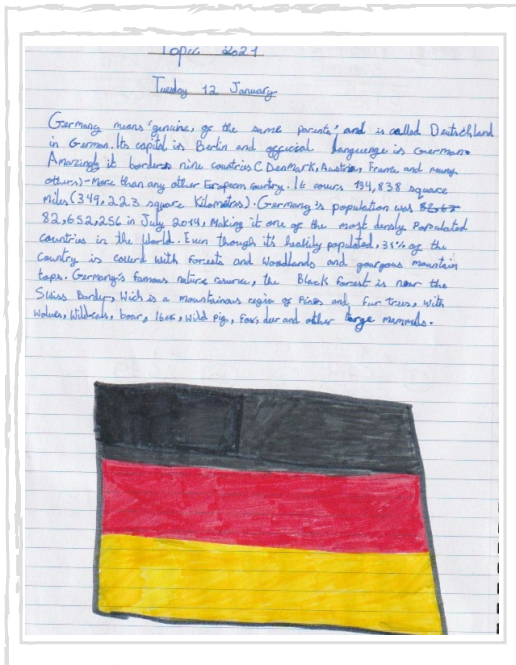 Topic 2021
Tuesday 12 January
Germany means 'genuine, of the same parents' and is called Deutschland
in German. Its capital is Berlin and official language is German.
Amazingly it borders nine countries (Denmark, Austria, France and many
others)-More than any other European country. It covers 134,838 square
miles (349,223 square Kilometres). Germany's population was
82,652,256 in July 2014, Making it one of the most densly Populated
countries in the World. Even though it's heavily populated, 31% of the
country is coverd with Forests and Woodlands and gourgous mountain
tops. Germany's Famous nature reserve, the Black Forest is near the
Swiss Border, Wich is a mountainous region of Pines and Fur trees, with
Wolves, Wildcats, boar, Ibex, wild pig, Fox, deer and other large mammals.